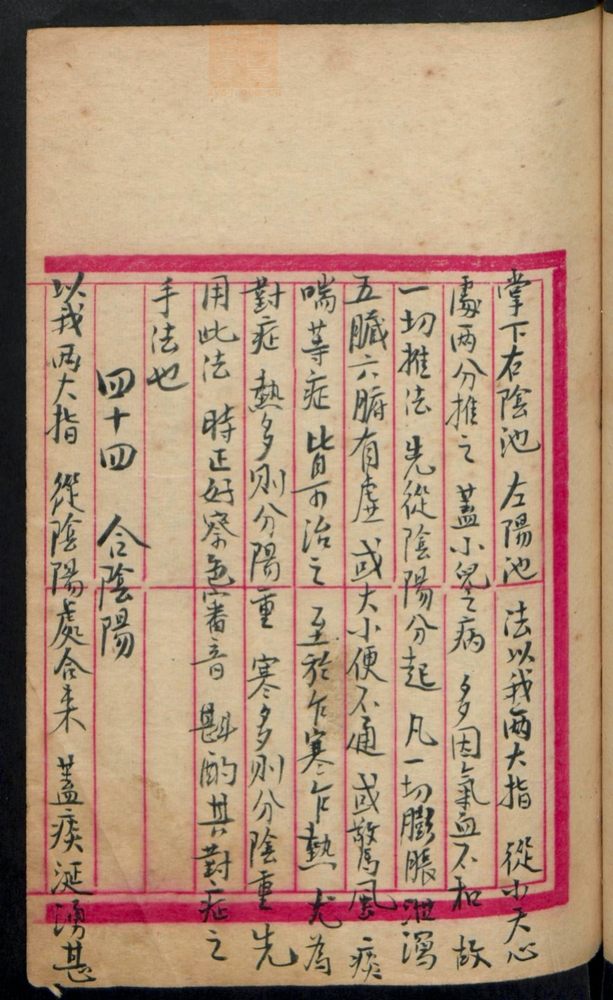 掌下右陰池 左陽池 法以我兩大指 從小天心
處兩分推之 蓋小兒之病 多因氣血不和 故
一切推法 先從陰陽分起 凡一切膨脹泄瀉
五臟六腑有虛 或大小便不通 或驚風痰
喘等症 皆可治之 至於乍寒乍熱 尤為
對症 熱多則分陽重 寒多則分陰重 先
用此法 時正好察色審音 斟酌其對症之
手法也
四十四 合陰陽
以我兩大指 從陰陽處合来 蓋痰涎湧甚